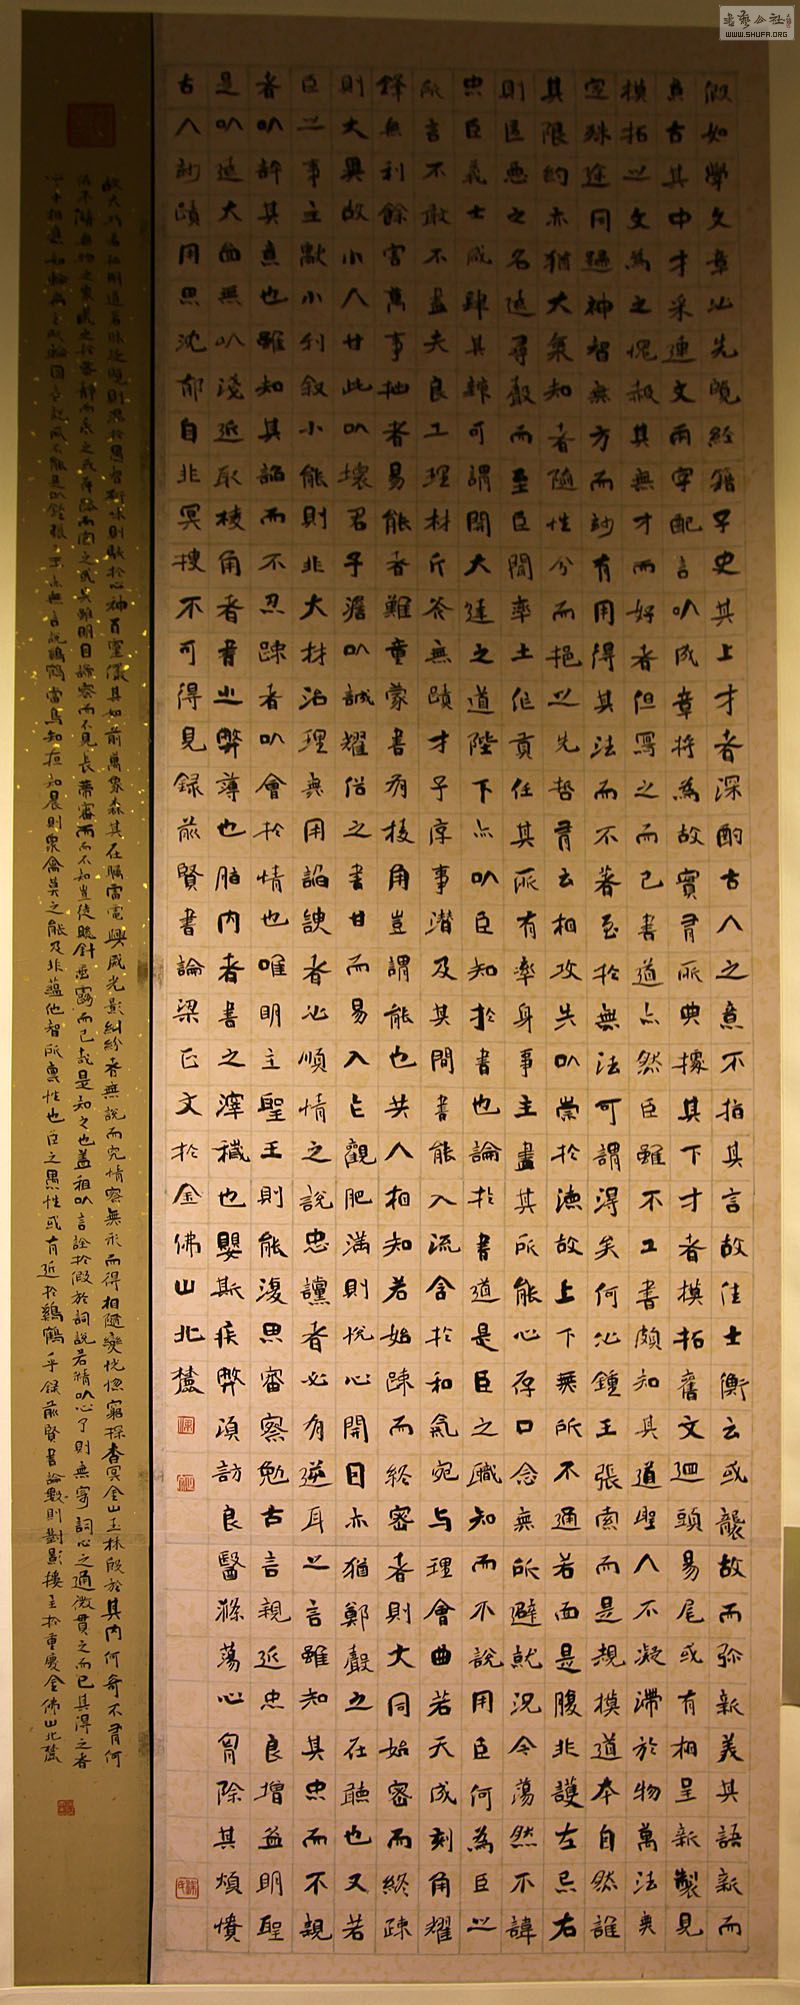 假如學文章必先覽經籍子史其上才者深酌古人之意不拾其言故陸士衡云或襲故而弥新美其語新而
意古其中才采連文兩字配言以成章將為故實有所典據其下才者模拓舊文迴頭易尾或有相呈新製見
模拓之文為之愧赧其無才而好者但寫之而已書道亦然臣雖不工書頗知其道聖人不凝滯於物萬法無
定殊途同歸神智無方而妙有用得其法而不著至於無法可謂得矣何必鍾王張索而是規模道本自然誰
其限約亦猶大氣知者隨性分而挹之先哲有云相攻失以崇於德故上下無所不通若面是腹非護左忌右
則匿惡之名遠尋聲而至臣聞率土作貢任其所有率身事主盡其所能心存口念無所避就況今蕩然不諱
忠臣義士咸肆其辭可謂開大進之道陛下亦以臣知於書也論於書道是臣之職知而不說用臣何為臣之
所言不敢不盡夫良工理材斤斧無蹟才子序事潛及其間書能入流含於和氣宛与理會曲若天成刻角耀
鋒無利餘害萬事拙者易能者難童蒙書有棱角豈謂能也共人相知若始疎而終密者則大同始密而終疎
則大異故小人甘此以壞君子澹以誠耀俗之書甘而易入乍觀肥滿則悅心開目亦猶鄭聲之在聽也又若
臣之事主獻小利敘小能則非大材治理無用諂諛者必順情之說忠讜者必有逆耳之言雖知其忠而不親
者以許其意也雖知其諂而不忍疎者以會於情也唯明主聖王則能復思審察勉古言親近忠良增益明聖
是以遠大而無以淺近取棱角者書之弊薄也脂肉者書之滓穢也嬰斯疾弊須訪良醫滌蕩心胷除其煩憒
古人妙蹟用思沈郁自非冥搜不可得見録前賢書論梁正文於金佛山北麓
故大巧若拙明道若昧泛覽則混於愚智研味則駭於心神百靈儼其如前萬象森其在矚雷電興威光影糾紛考無說而究情察無形而得相隨變恍惚窮探杳冥金山玉林殷於其內何奇不有何
怪不儲無物之象藏之於密靜而求之或存躁而索之或失雖明目諦察而不見長策審逼而不知豈徒懸針垂露而已哉是知之也蓋粗以言詮於假於詞說若精以心了則無寄詞心之通微貫之而已其得之者
心手相應如輪扁之斲輪固言說所不能是以鍾張二王亦無言說鷄鶴常鳥知夜知晨則眾禽莫之能及非蘊他智所稟性也臣之愚性或有近於鷄鶴乎録前賢書論數則對影樓主於重慶金佛山北麓
書藝公社
WWW.SHUFA.ORG